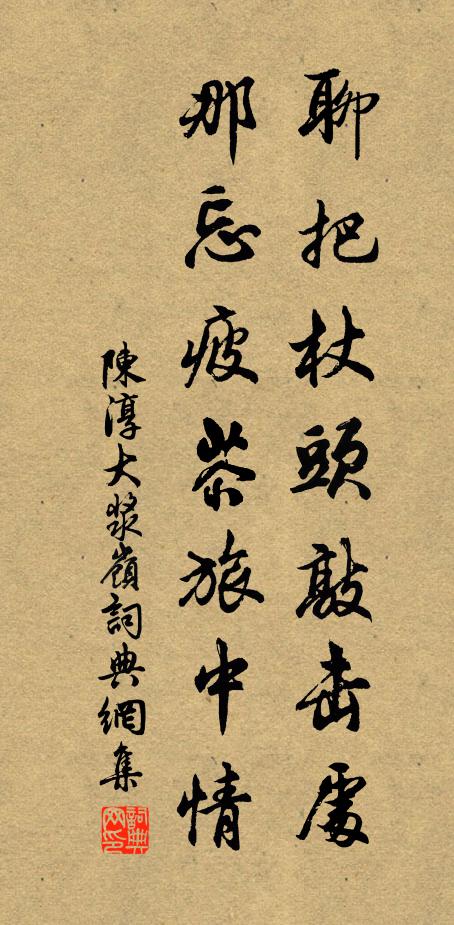 聊把杖頭敲击處
那忘疲苶旅中情
陳淳大漿嶺詞典網集
詞典網印